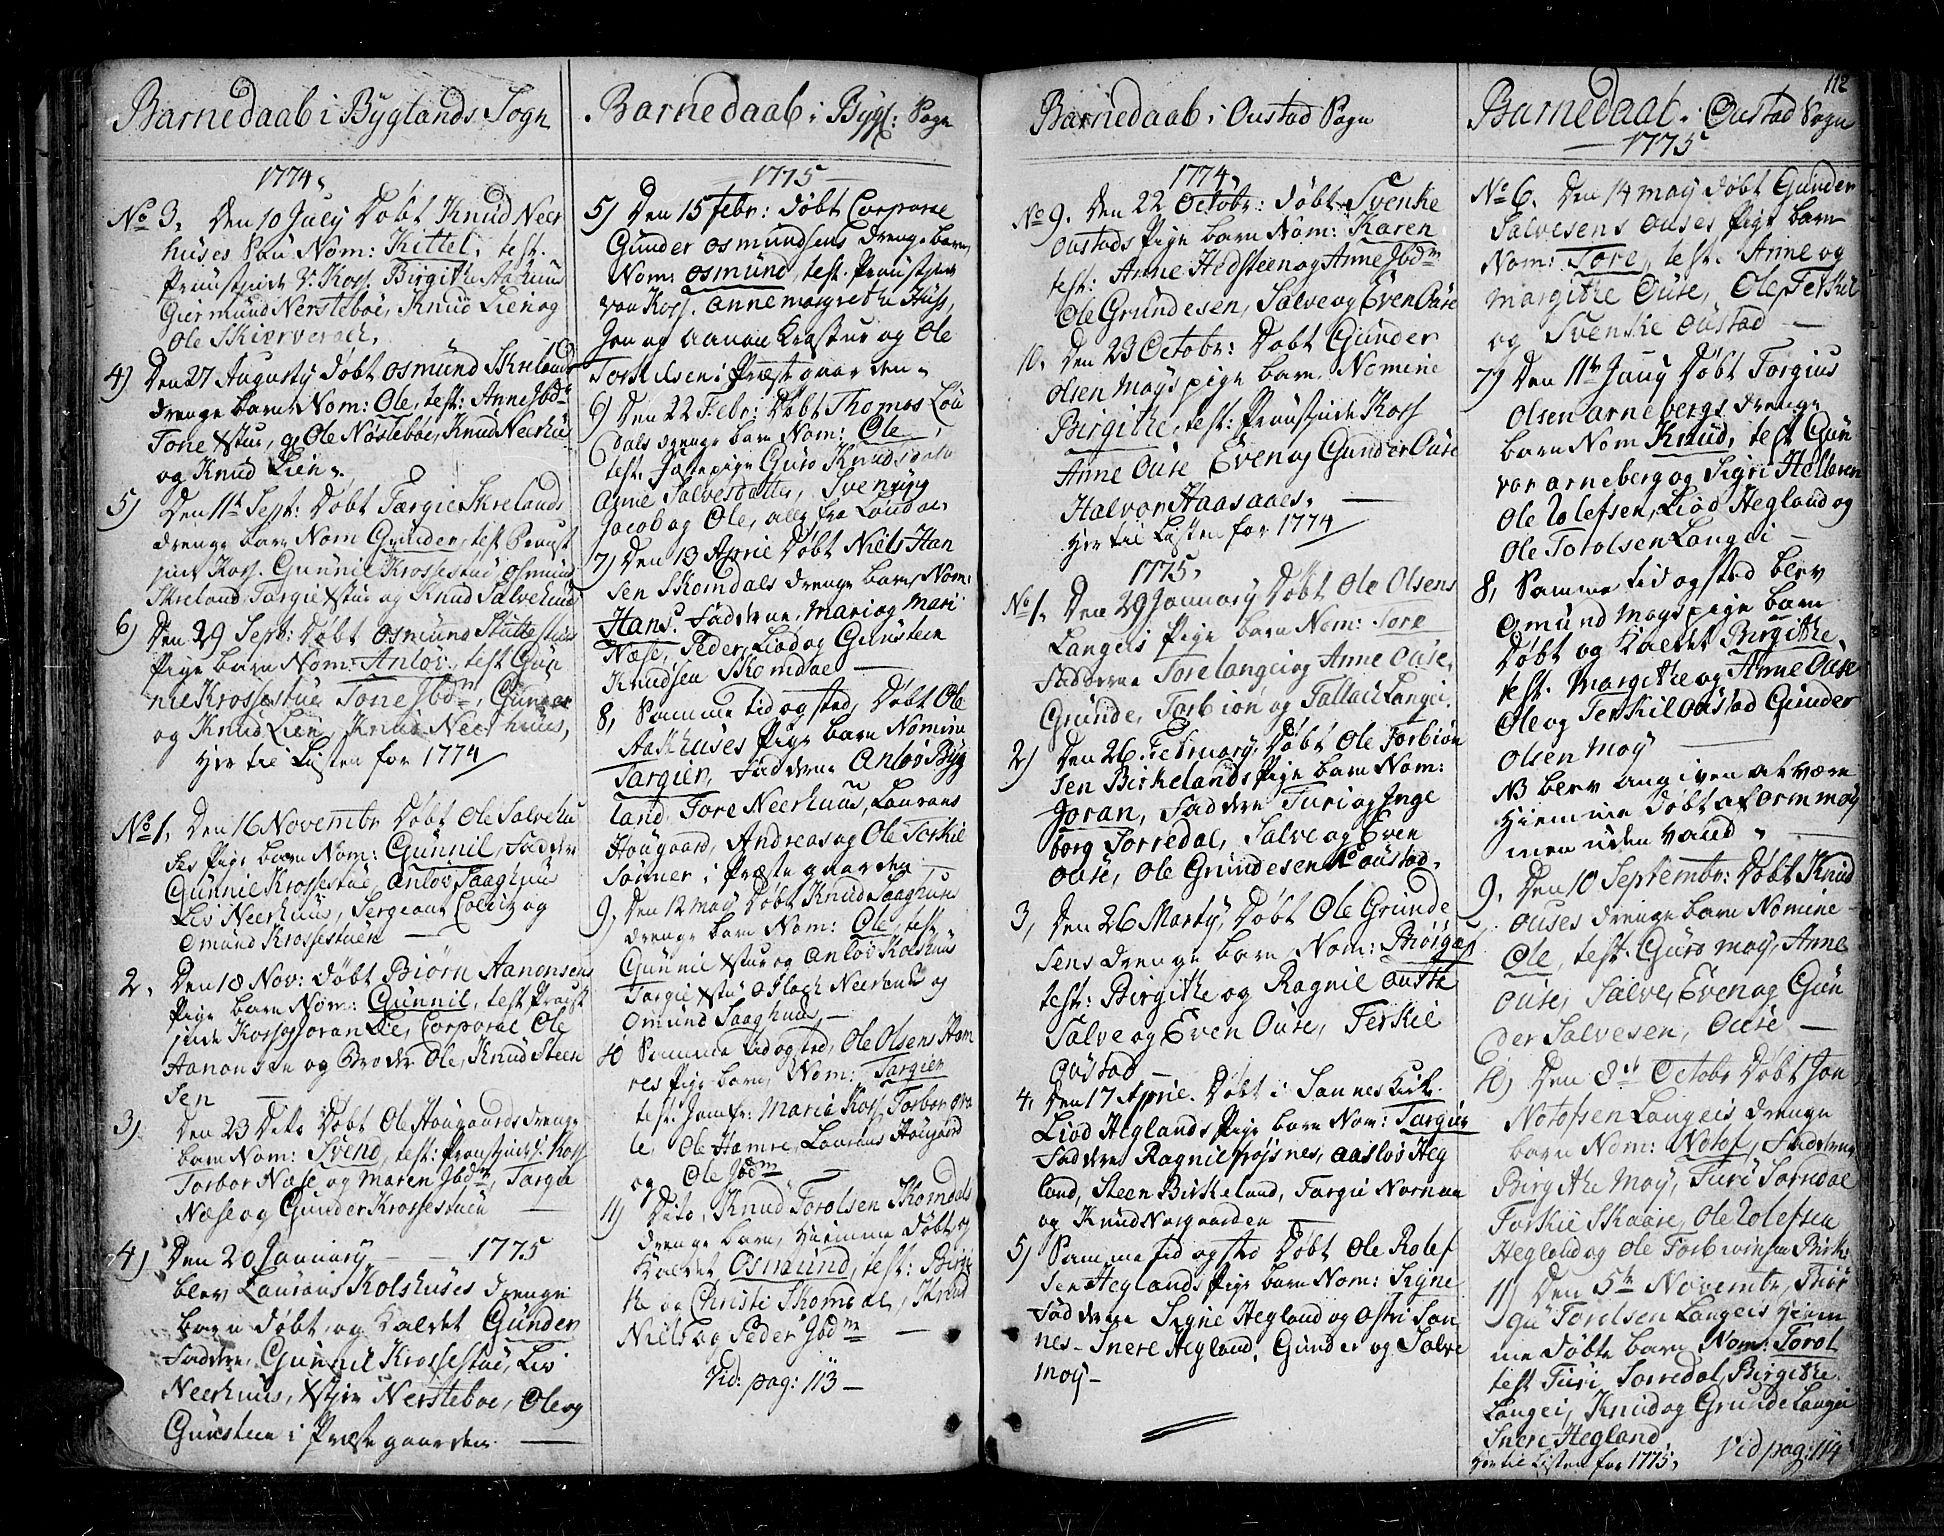 Barnedaab i Byglands Sogn
1774.
No 3. Den 10 July Døbt Knud Neer
huses Søn Nom: Kittel, test.
Proustinde V. Koss. Birgithe Aakhuus
Giermund Nersteboe, Knud Lien og
Ole Skierveroe.
4) Den 27 Augusty Døbt Osmund Skrelands
drenge barn Nom: Ole, test: Anne Jbdr
Tone Xstue, og Ole Nøsteboe, Knud Neerhuus
og Knud Lien.
5) Den 11te Sept: Døbt Tærgie Skrelands
drenge barn Nom Gunder, test Proust
inde Koss. Gunnil Krossestue Osmund
Skreland Targie Xstue og Knud Salvehuus
6) Den 29 Sept: Døbt Osmund
Pige barn Nom: Anlov, test Gun
nil Krossestue Tone Jbdm, Gunder
og Knud Lien, Knud Neerhuus,
Her til Listen for 1774
No 1. Den 16 Novembr Døbt Ole Salvehu
ses Pige barn Nom: Gunnil, Fadder
Gunnil Krossestue Anlov Saaghuus
Liv Neerhuus, Sergeant og
Omund Krossestuen
2. Den 18 Nov: Døbt Biørn Aanonsens
Pige barn Nom: Gunnil, test Proust
inde Koss Joran Lie, Corporal Ole
Aanonsen og Broder Ole, Knud Steen
sen
3) Den 23 Dito Døbt Ole Haugaards drenge
barn Nom: Svend, test: Proustinde Koss
Torbor Næse og Maren Jbdm, Targie
Næse og Gunder Krossestuen
4) Den 20 January 1775
blev Laurans Kolshuses drenge
barn døbt, og Kaldet Gunder
Faddere, Gunnil Krossestue, Liv
Neerhuus, Xstien Nersteboe, Ole og
Gunsteen i Præstegaarden
Barnedaab i Bygl: Sogn
1775
5) Den 15 febr: døbt Corporal
Gunder Osmundsens drenge barn
Nom: Osmund, test. Proustinde
von Koss. Anne Margrethe Huss,
Jon og Aanon Krostue og Ole
Torkelsen i Præstegaarden
6) Den 22 Febr: Døbt Thomas Lou
dals drenge barn Nom: Ole,
test. Jøstepige Guro Knudsdatt
Anne Salvesdatter, Svenung
Jacob og Ole, alle fra Loudal
7) Den 13 Aprie Døbt Niels Han
sen Skomdals drenge barn Nom:
Hans. Fadderne, Mari og Mari
Næse, Peder, Liod og Gunsteen
Knudsen Skomdal
8, Samme tid og sted, Døbt Ole
Aakhuses Pige barn Nomine
Targier, Faddere Anlov Byg
land, Tore Neerhuus, Laurans
Haugaard, Andreas og Ole Terkil
sønner i Præstegaarden
9. Den 12 May Døbt Knud Saaghuses
drenge barn Nom: Ole, test
Gunnil Xstue og Anlov Kolshuus
Targie Xstue Neerhuus og
Omund Saaghuus,
10 Samme tid og sted, Ole Olsens Ham
res Pige barn, Nom: Targier
test: Jomfr: Maria Koss Torbor
Ole Hamre, Laurans Haugaard
og Ole Jbdm
11) Dito, Knud Torolsen Skomdals
drenge barn, Hiemme Døbt og
Kaldet Osmund, test: Birgit
he og Christi Skomdal, Knud
Niels og Peder Jbdm
Vid: pag: 113
Barnedaab i Oustad Sogn
1774
No 9. Den 22 Octobr: døbt Svenke
Oustads Pige barn Nom: Karen
test: Anne Hedsteen og Anne Jbdm
Ole Grundesen, Salve og Even Ouse
10. Den 23 Octobr: Døbt Gunder
Olsen Moys pige barn Nomine
Birgithe, test: Proustinde Koss
Anne Ouse Even og Gunder Ouse
Halvor Haasaaes.
Her til Listen for 1774
1775.
No 1. Den 29 January Døbt Ole Olsens
Langeis Pige barn Nom: Tore
Fadderne Tore Langei og Anne Ouse,
Grunde, Torbiøn og Tallach Langei.
2) Den 26 February Døbt Ole Torbiøn
sen Birkelands Pige barn Nom:
Joran, Faddere Turi og Inge
borg Torredal, Salve og Even
Ouse, Ole Grundesen Oustad.
3, Den 26 Marty, Døbt Ole Grunde
sens drenge barn Nom:
test: Birgithe og Ragnil Ouste
Salve og Even Ouse, Terkie
Oustad
4, Den 17 Aprie. Døbt i Sannes Kirk.
Liod Heglands Pige barn Nom: Targier
Faddere Ragnil Frøisnes, Aaslov Heg
land, Steen Birkeland, Targie Nornæs
og Knud Norgaarden
5) Samme tid og sted Døbt Ole Rolef
sen Heglands Pige barn Nom: Signe
Faddere Signe Hegland og Ostri San
nes Snere Hegland, Gunder og Salve
Moy
112
Barnedaab i Oustad Sogn
1775
No 6. Den 14 May døbt Gunder
Salvesens Ouses Pige barn
Nom: Tore, test. Anne og
Margithe Ouse, Ole Terkil
og Svenke Oustad
7) Den 11te Juny Døbt Torgius
Olsen Arnebergs drenge
barn Nom Knud, test Gun
vor Arneberg og Sigri Helleren
Ole Rolefsen, Liod Hegland og
Ole Torolsen Langei
8, Samme tid og sted blev
Omund Moys pige barn
Døbt og Kaldet Birgithe,
test. Margithe og Anne Ouse
Ole og Terkil Oustad Gunder
Olsen Moy
NB blev angiven at være
Hiemme døbt af Orm Moy
men uden Vand.
9. Den 10 Septembr: Døbt Knud
Ouses drenge barn Nomine
Ole, test: Guro Moy, Anne
Ouse, Salve, Even og Gun
der Salvesen, Ouse
10) Den 8de Octobr Døbt Jon
Notofsen Langeis drenge
barn Nom: Notof, Fadderne
Birgithe Moy, Turi Torredal
Torkie Skaare, Ole Rolefsen
Hegland og Ole Torbiønsen Birke
11) Den 5te Novembr,
Torelsen Langeis Hiem
me Døbte barn Nom: Torol
test Turi Torredal, Birgithe
Langei, Knud og Grunde Langei
Snere Hegland
Her til Listen for 1775.
Vid pag: 114